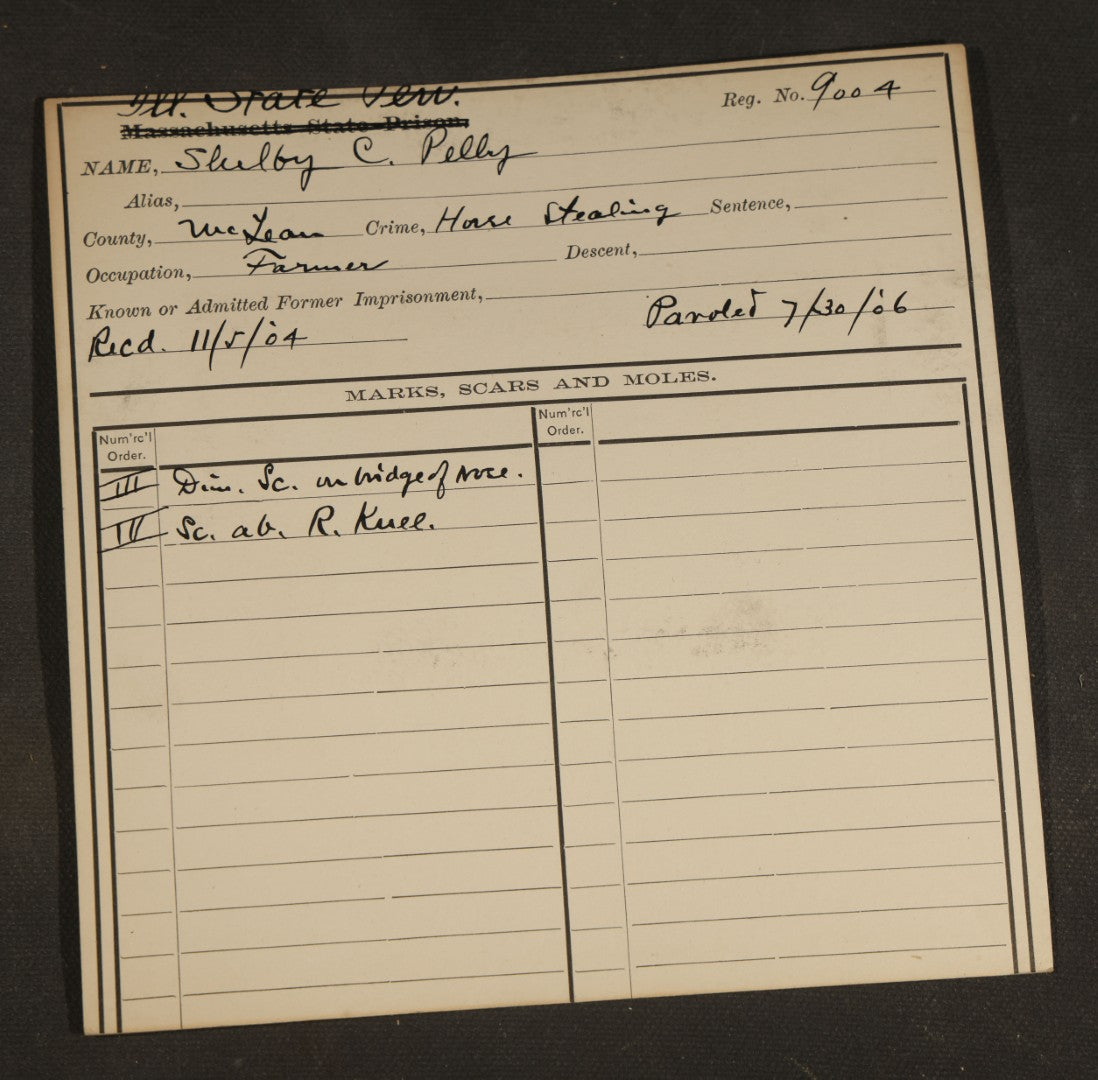 Ill. State Pen.
Massachusetts State Prison.
Reg. No. 9004
NAME, Shelby C. Pelly
Alias,
County, McLean Crime, Horse Stealing Sentence,
Occupation, Farmer Descent,
Known or Admitted Former Imprisonment,
Recd. 11/5/'04 Paroled 7/30/'06
MARKS, SCARS AND MOLES.
Num'rc'l Order. Num'rc'l Order.
III Dim. Sc. on bridge of nose.
IV Sc. ab. R. Knee.